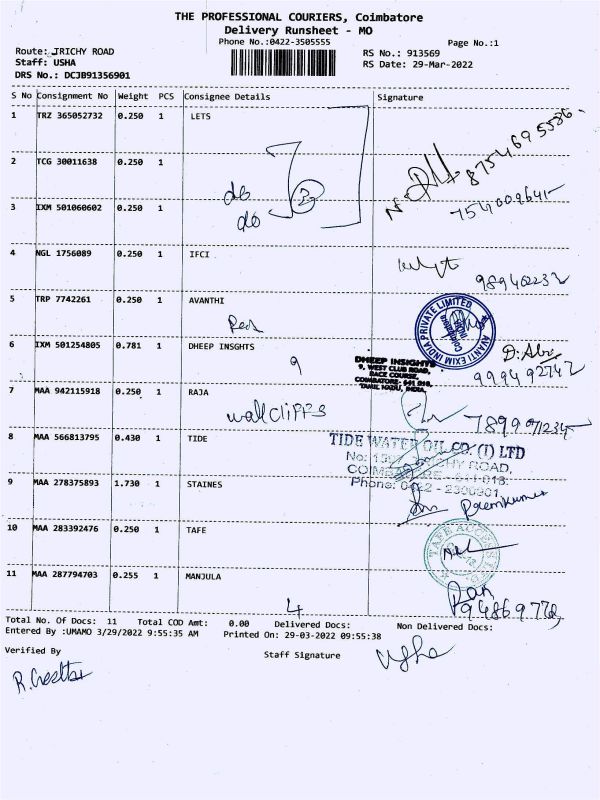 THE PROFESSIONAL COURIERS, Coimbatore
Delivery Runsheet - MO
Phone No.:0422-3505555
Page No.:1
Route: TRICHY ROAD
RS No.: 913569
Staff: USHA
RS Date: 29-Mar-2022
DRS No.: DCJB91356901
S No Consignment No Weight PCS Consignee Details Signature
1 TRZ 365052732 0.250 1 LETS
8754695586
2 TCG 30011638 0.250 1
do
7540009641
3 IXM 501060602 0.250 1
do
4 NGL 1756089 0.250 1 IFCI
5 TRP 7742261 0.250 1 AVANTHI
AVANTI EXIM INDIA PRIVATE LIMITED
6 IXM 501254805 0.781 1 DHEEP INSGHTS
9
DHEEP INSIGHTS
9, WEST CLUB ROAD,
RACE COURSE,
COIMBATORE- 641 018,
TAMIL NADU, INDIA.
7 MAA 942115918 0.250 1 RAJA
wall cliffs
8 MAA 566813795 0.430 1 TIDE
TIDE WATER OIL CO. (I) LTD
9 MAA 278375893 1.730 1 STAINES
Premkumar
10 MAA 283392476 0.250 1 TAFE
11 MAA 287794703 0.255 1 MANJULA
4
Total No. Of Docs: 11 Total COD Amt: 0.00 Delivered Docs: Non Delivered Docs:
Entered By :UMAMO 3/29/2022 9:55:35 AM Printed On: 29-03-2022 09:55:38
Verified By
Staff Signature
Usha